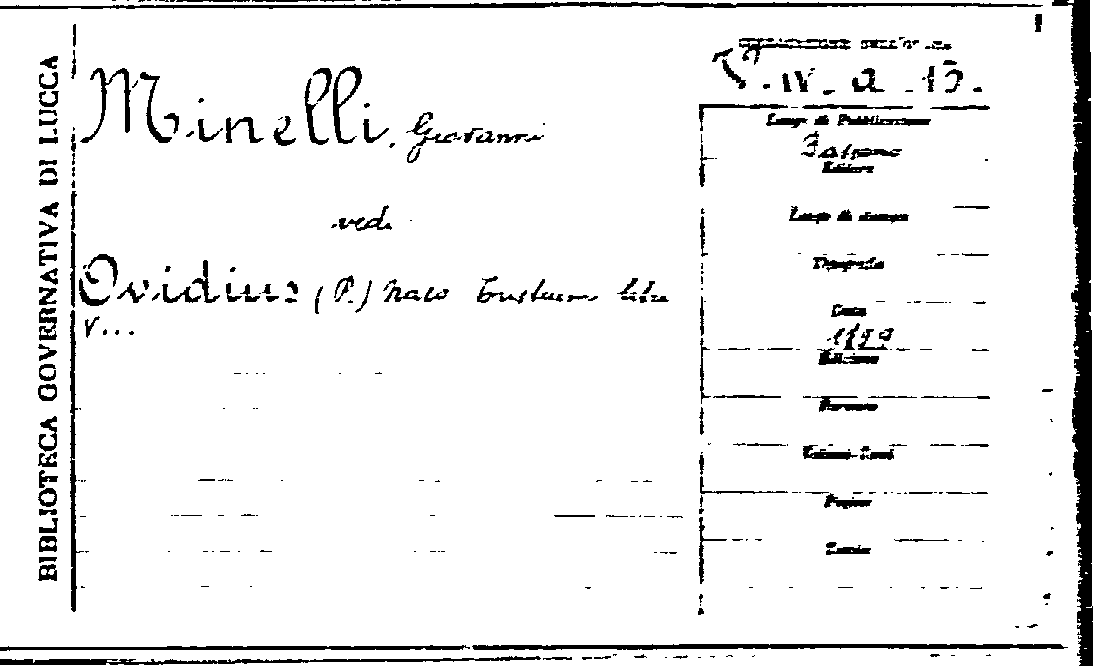 BIBLIOTECA GOVERNATIVA DI LUCCA
Minelli, Giovanni
vedi
Ovidius (P.) Naso Tristium libri
V...
IV. a. 15.
Luogo di Pubblicazione
Editore
Luogo di stampa
Tipografia
Data
Edizione
Formato
Volumi-Tomi
Pagine
Tavole